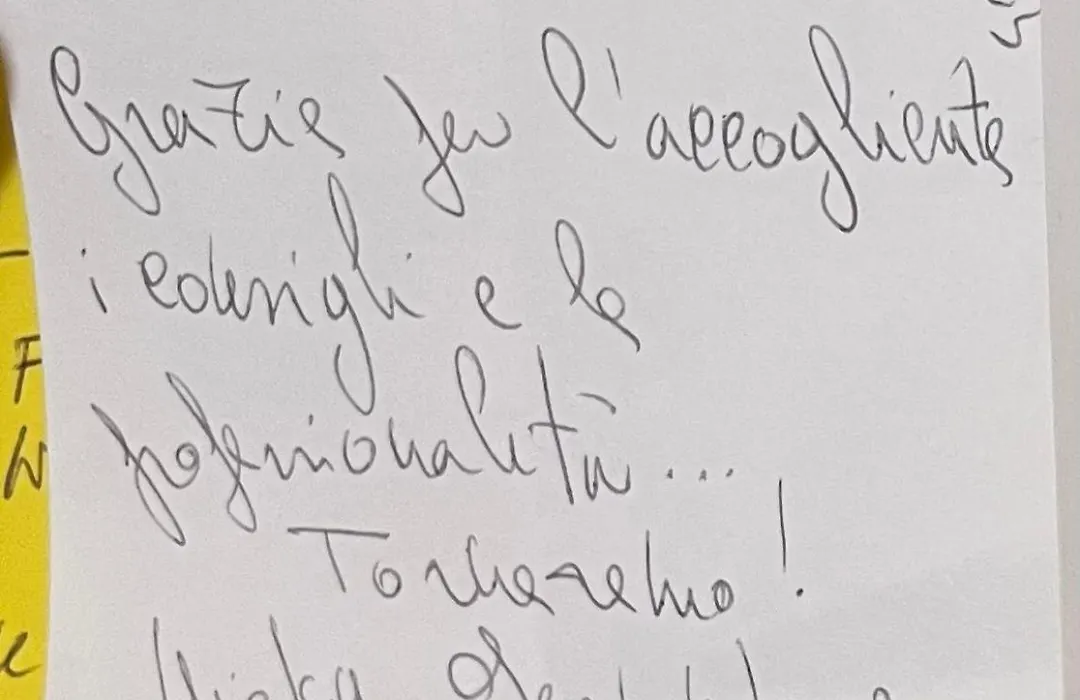 Grazie per l'accogliente
i consigli e la
professionalità...
Torneremo!
F